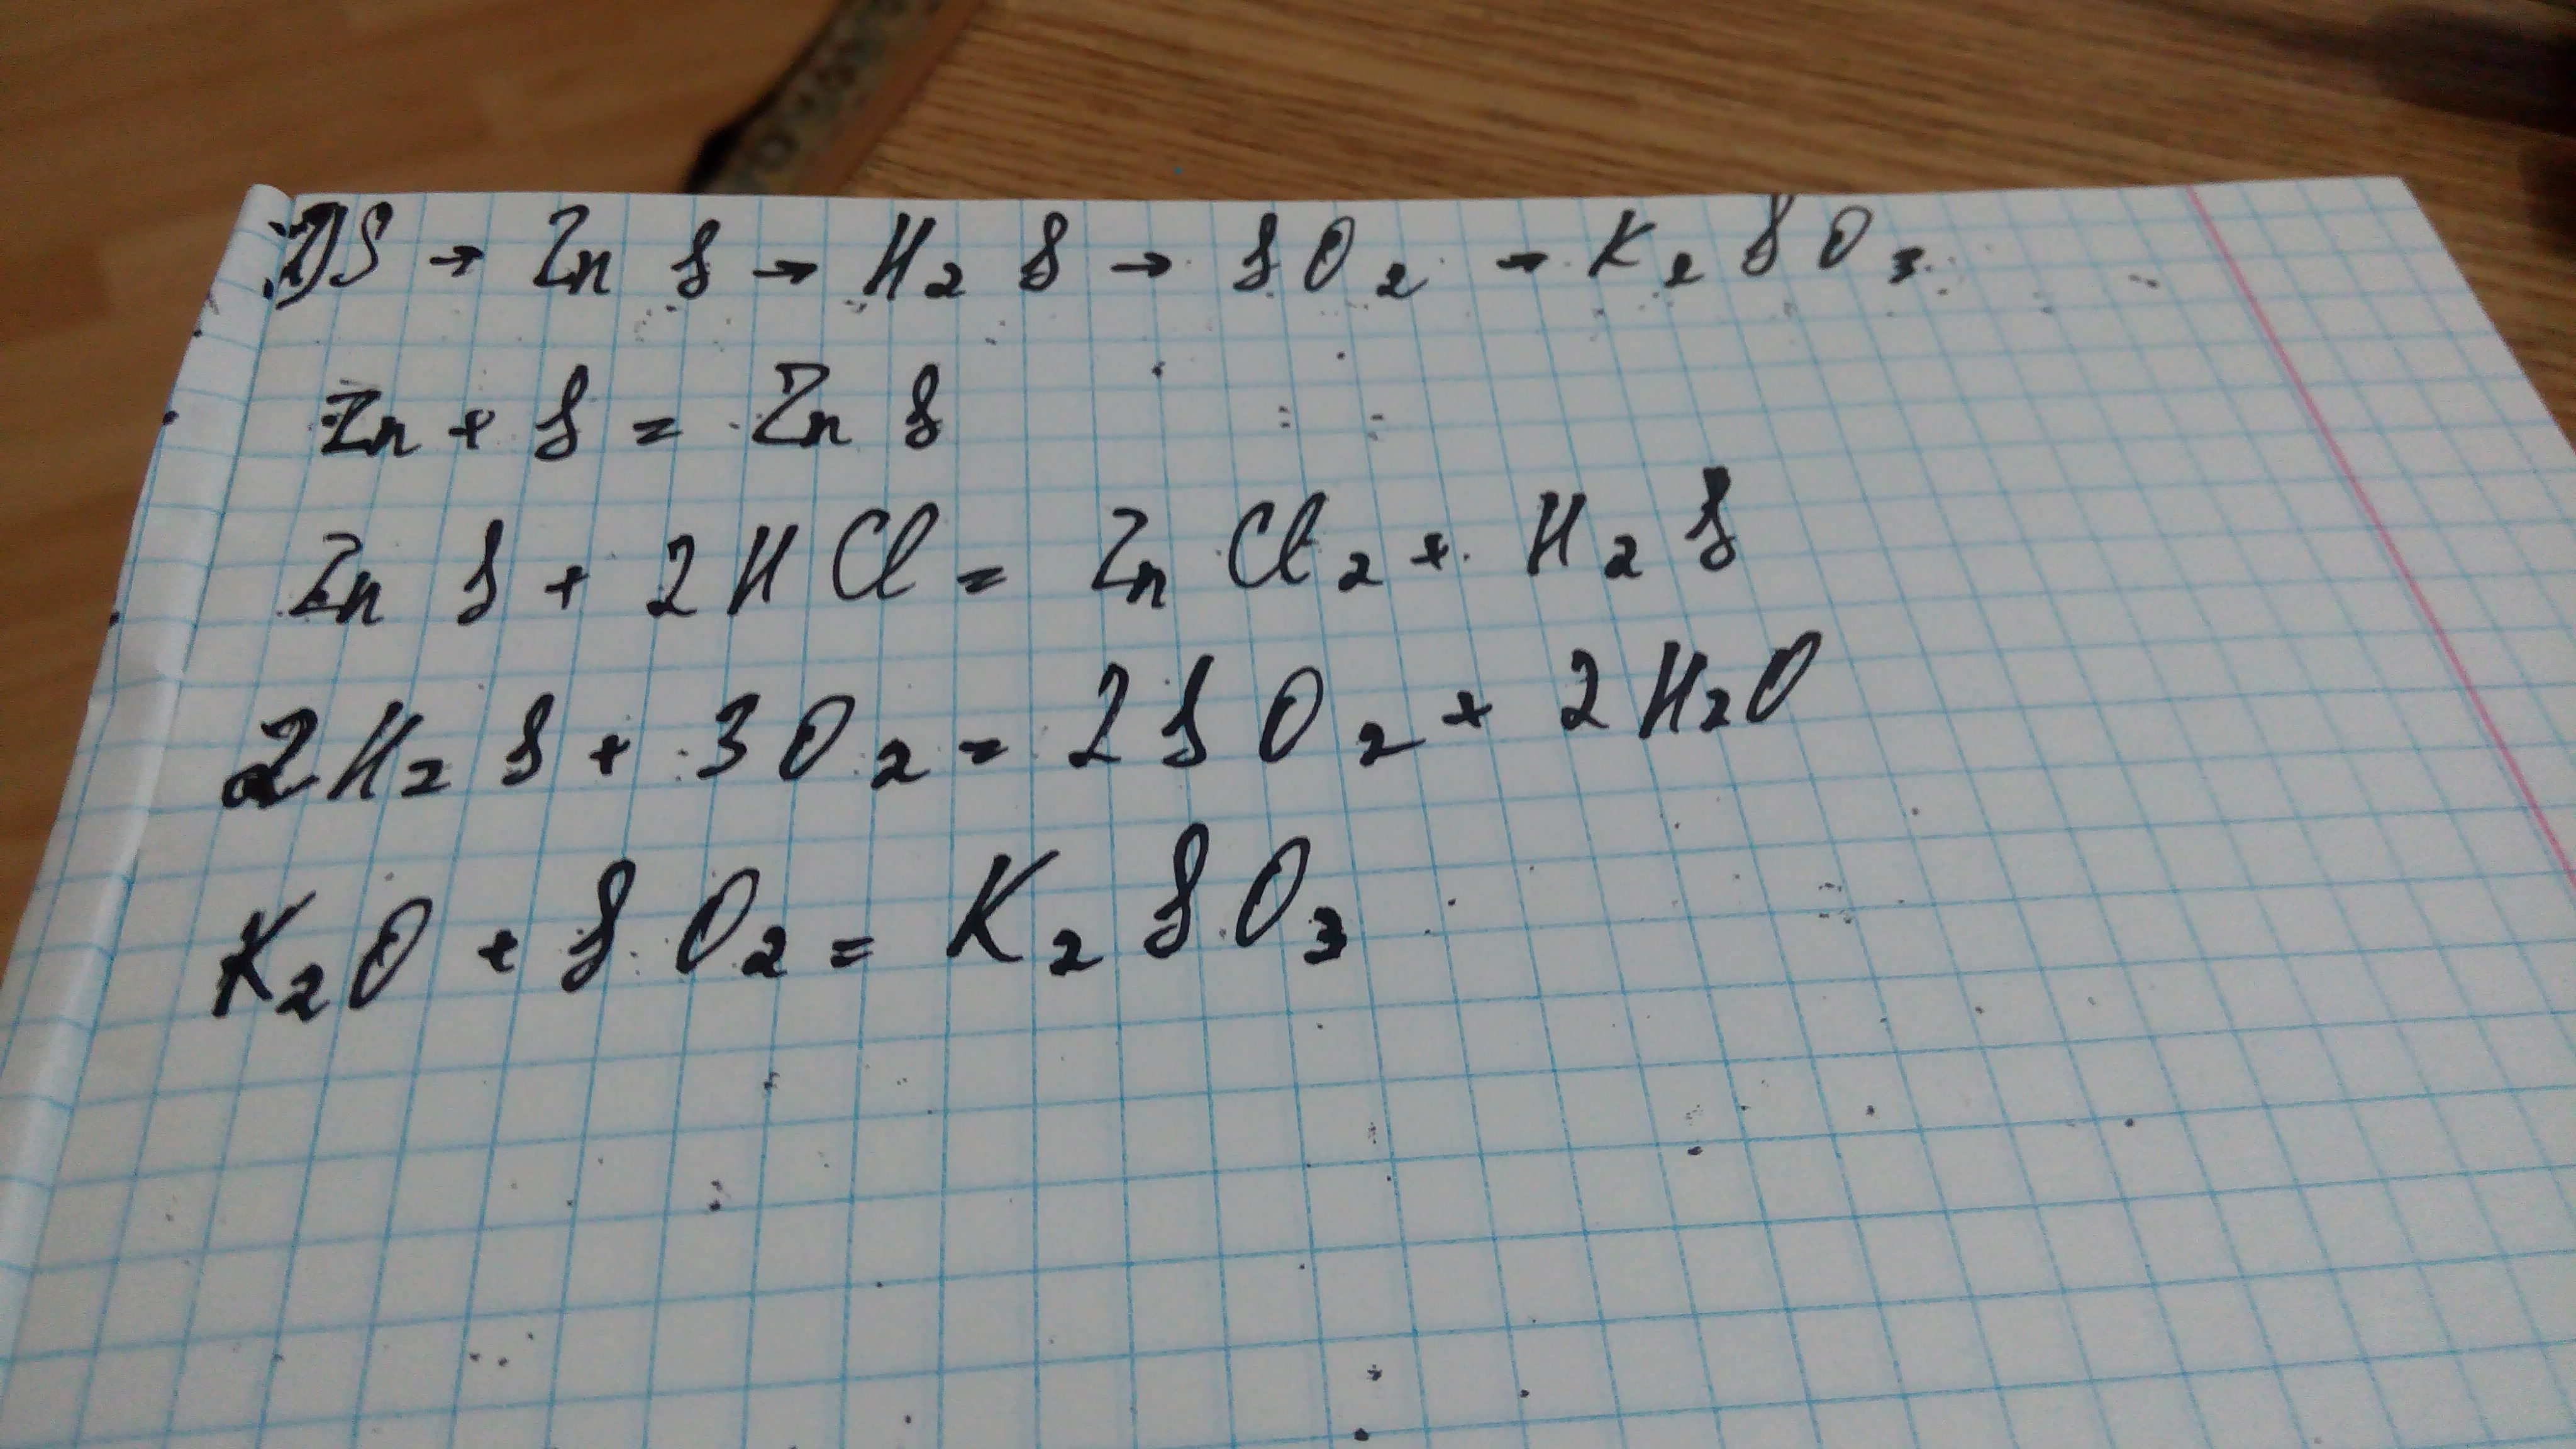 2) S → Zn S → H₂ S → SO₂ → K₂ SO₃
Zn + S = Zn S
Zn S + 2HCl = Zn Cl₂ + H₂ S
2H₂ S + 3O₂ = 2SO₂ + 2H₂O
K₂O + SO₂ = K₂ SO₃